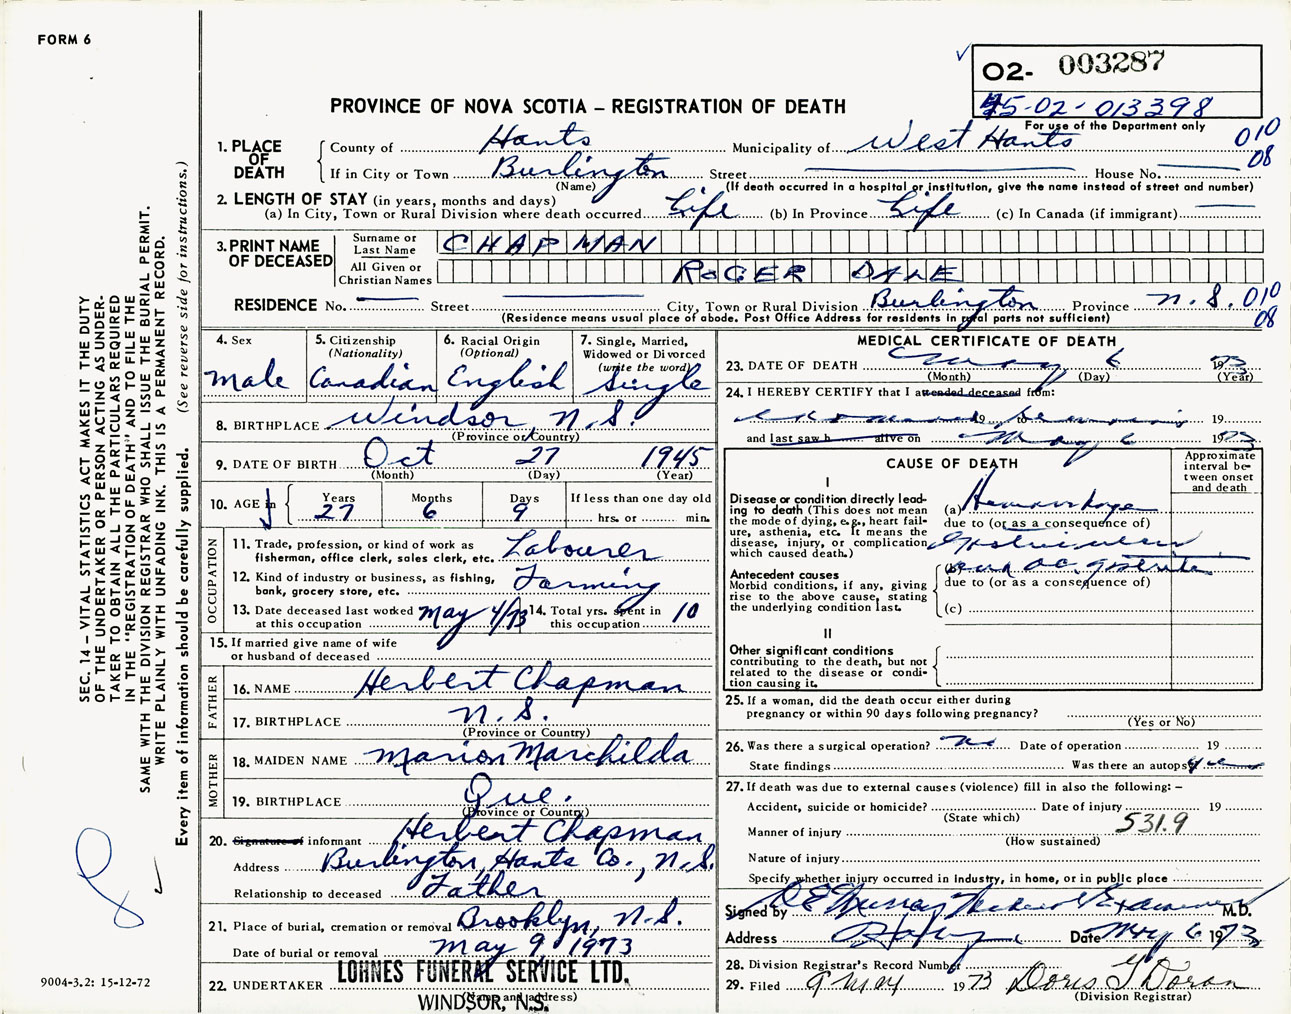 FORM 6
O2- 003287
45-02-013398
For use of the Department only
PROVINCE OF NOVA SCOTIA – REGISTRATION OF DEATH
1. PLACE OF DEATH
County of Hants Municipality of West Hants 010
08
If in City or Town Burlington Street House No.
(Name) (If death occurred in a hospital or institution, give the name instead of street and number)
2. LENGTH OF STAY (in years, months and days)
(a) In City, Town or Rural Division where death occurred Life (b) In Province Life (c) In Canada (if immigrant)
3. PRINT NAME OF DECEASED
Surname or Last Name CHAPMAN
All Given or Christian Names ROGER DALE
RESIDENCE No. Street City, Town or Rural Division Burlington Province N.S. 010
08
(Residence means usual place of abode. Post Office Address for residents in rural parts not sufficient)
4. Sex Male
5. Citizenship (Nationality) Canadian
6. Racial Origin (Optional) English
7. Single, Married, Widowed or Divorced (write the word) Single
8. BIRTHPLACE Windsor, N.S.
(Province or Country)
9. DATE OF BIRTH Oct 27 1945
(Month) (Day) (Year)
10. AGE in Years Months Days If less than one day old
27 6 9 hrs. or min.
OCCUPATION
11. Trade, profession, or kind of work as fisherman, office clerk, sales clerk, etc. Labourer
12. Kind of industry or business, as fishing, bank, grocery store, etc. Farming
13. Date deceased last worked at this occupation May 4/73 14. Total yrs. spent in this occupation 10
15. If married give name of wife or husband of deceased
FATHER
16. NAME Herbert Chapman
17. BIRTHPLACE N.S.
(Province or Country)
MOTHER
18. MAIDEN NAME Marion Marchilda
19. BIRTHPLACE Que.
(Province or Country)
20. Signature of informant Herbert Chapman
Address Burlington, Hants Co., N.S.
Relationship to deceased Father
21. Place of burial, cremation or removal Brooklyn, N.S.
Date of burial or removal May 9, 1973
22. UNDERTAKER LOHNES FUNERAL SERVICE LTD.
WINDSOR, N.S.
(Name and address)
MEDICAL CERTIFICATE OF DEATH
23. DATE OF DEATH May 6 1973
(Month) (Day) (Year)
24. I HEREBY CERTIFY that I attended deceased from:
19 to 19
and last saw h alive on May 6 1973
CAUSE OF DEATH
Approximate interval between onset and death
I
Disease or condition directly leading to death (This does not mean the mode of dying, e.g., heart failure, asthenia, etc. It means the disease, injury, or complication which caused death.)
(a) Hemorrhage
due to (or as a consequence of)
Antecedent causes
Morbid conditions, if any, giving rise to the above cause, stating the underlying condition last.
due to (or as a consequence of)
(c)
II
Other significant conditions
contributing to the death, but not related to the disease or condition causing it.
25. If a woman, did the death occur either during pregnancy or within 90 days following pregnancy?
(Yes or No)
26. Was there a surgical operation? No Date of operation 19
State findings Was there an autopsy yes
27. If death was due to external causes (violence) fill in also the following: –
Accident, suicide or homicide? Date of injury 19
(State which)
531.9
Manner of injury
(How sustained)
Nature of injury
Specify whether injury occurred in industry, in home, or in public place
Signed by D E Murray Medical Examiner M.D.
Address Date May 6 1973
28. Division Registrar's Record Number
29. Filed 9 May 1973 Doris G Doran
(Division Registrar)
SEC. 14 – VITAL STATISTICS ACT MAKES IT THE DUTY
OF THE UNDERTAKER OR PERSON ACTING AS UNDERTAKER TO OBTAIN ALL THE PARTICULARS REQUIRED
IN THE "REGISTRATION OF DEATH" AND TO FILE THE
SAME WITH THE DIVISION REGISTRAR WHO SHALL ISSUE THE BURIAL PERMIT.
WRITE PLAINLY WITH UNFADING INK. THIS IS A PERMANENT RECORD.
Every item of information should be carefully supplied. (See reverse side for instructions.)
9004-3.2: 15-12-72